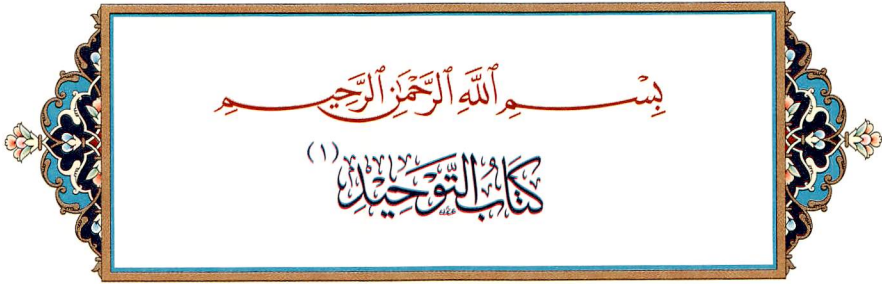 بِسْمِ ٱللَّهِ ٱلرَّحْمَٰنِ ٱلرَّحِيمِ
كِتَابُ التَّوْحِيدِ (١)